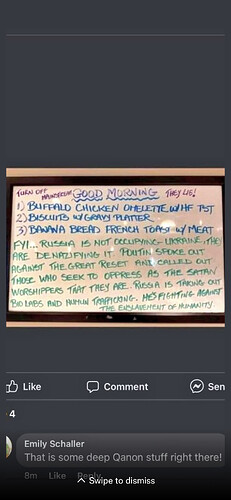 TURN OFF MAINSTREAM GOOD MORNING THEY LIE!
1) BUFFALO CHICKEN OMELETTE W/HF TST
2) BISCUITS W/GRAVY PLATTER
3) BANANA BREAD FRENCH TOAST W/ MEAT
FYI... RUSSIA IS NOT OCCUPYING UKRAINE. THEY
ARE DENAZIFYING IT. POUTIN SPOKE OUT
AGAINST THE GREAT RESET AND CALLED OUT
THOSE WHO SEEK TO OPPRESS AS THE SATAN
WORSHIPPERS THAT THEY ARE. RUSSIA IS TAKING OUT
BIO LABS AND HUMAN TRAFFICKING. HES FIGHTING AGAINST
THE ENSLAVEMENT OF HUMANITY
Like Comment Sen
4
Emily Schaller
That is some deep Qanon stuff right there!
8m Like Reply
Swipe to dismiss